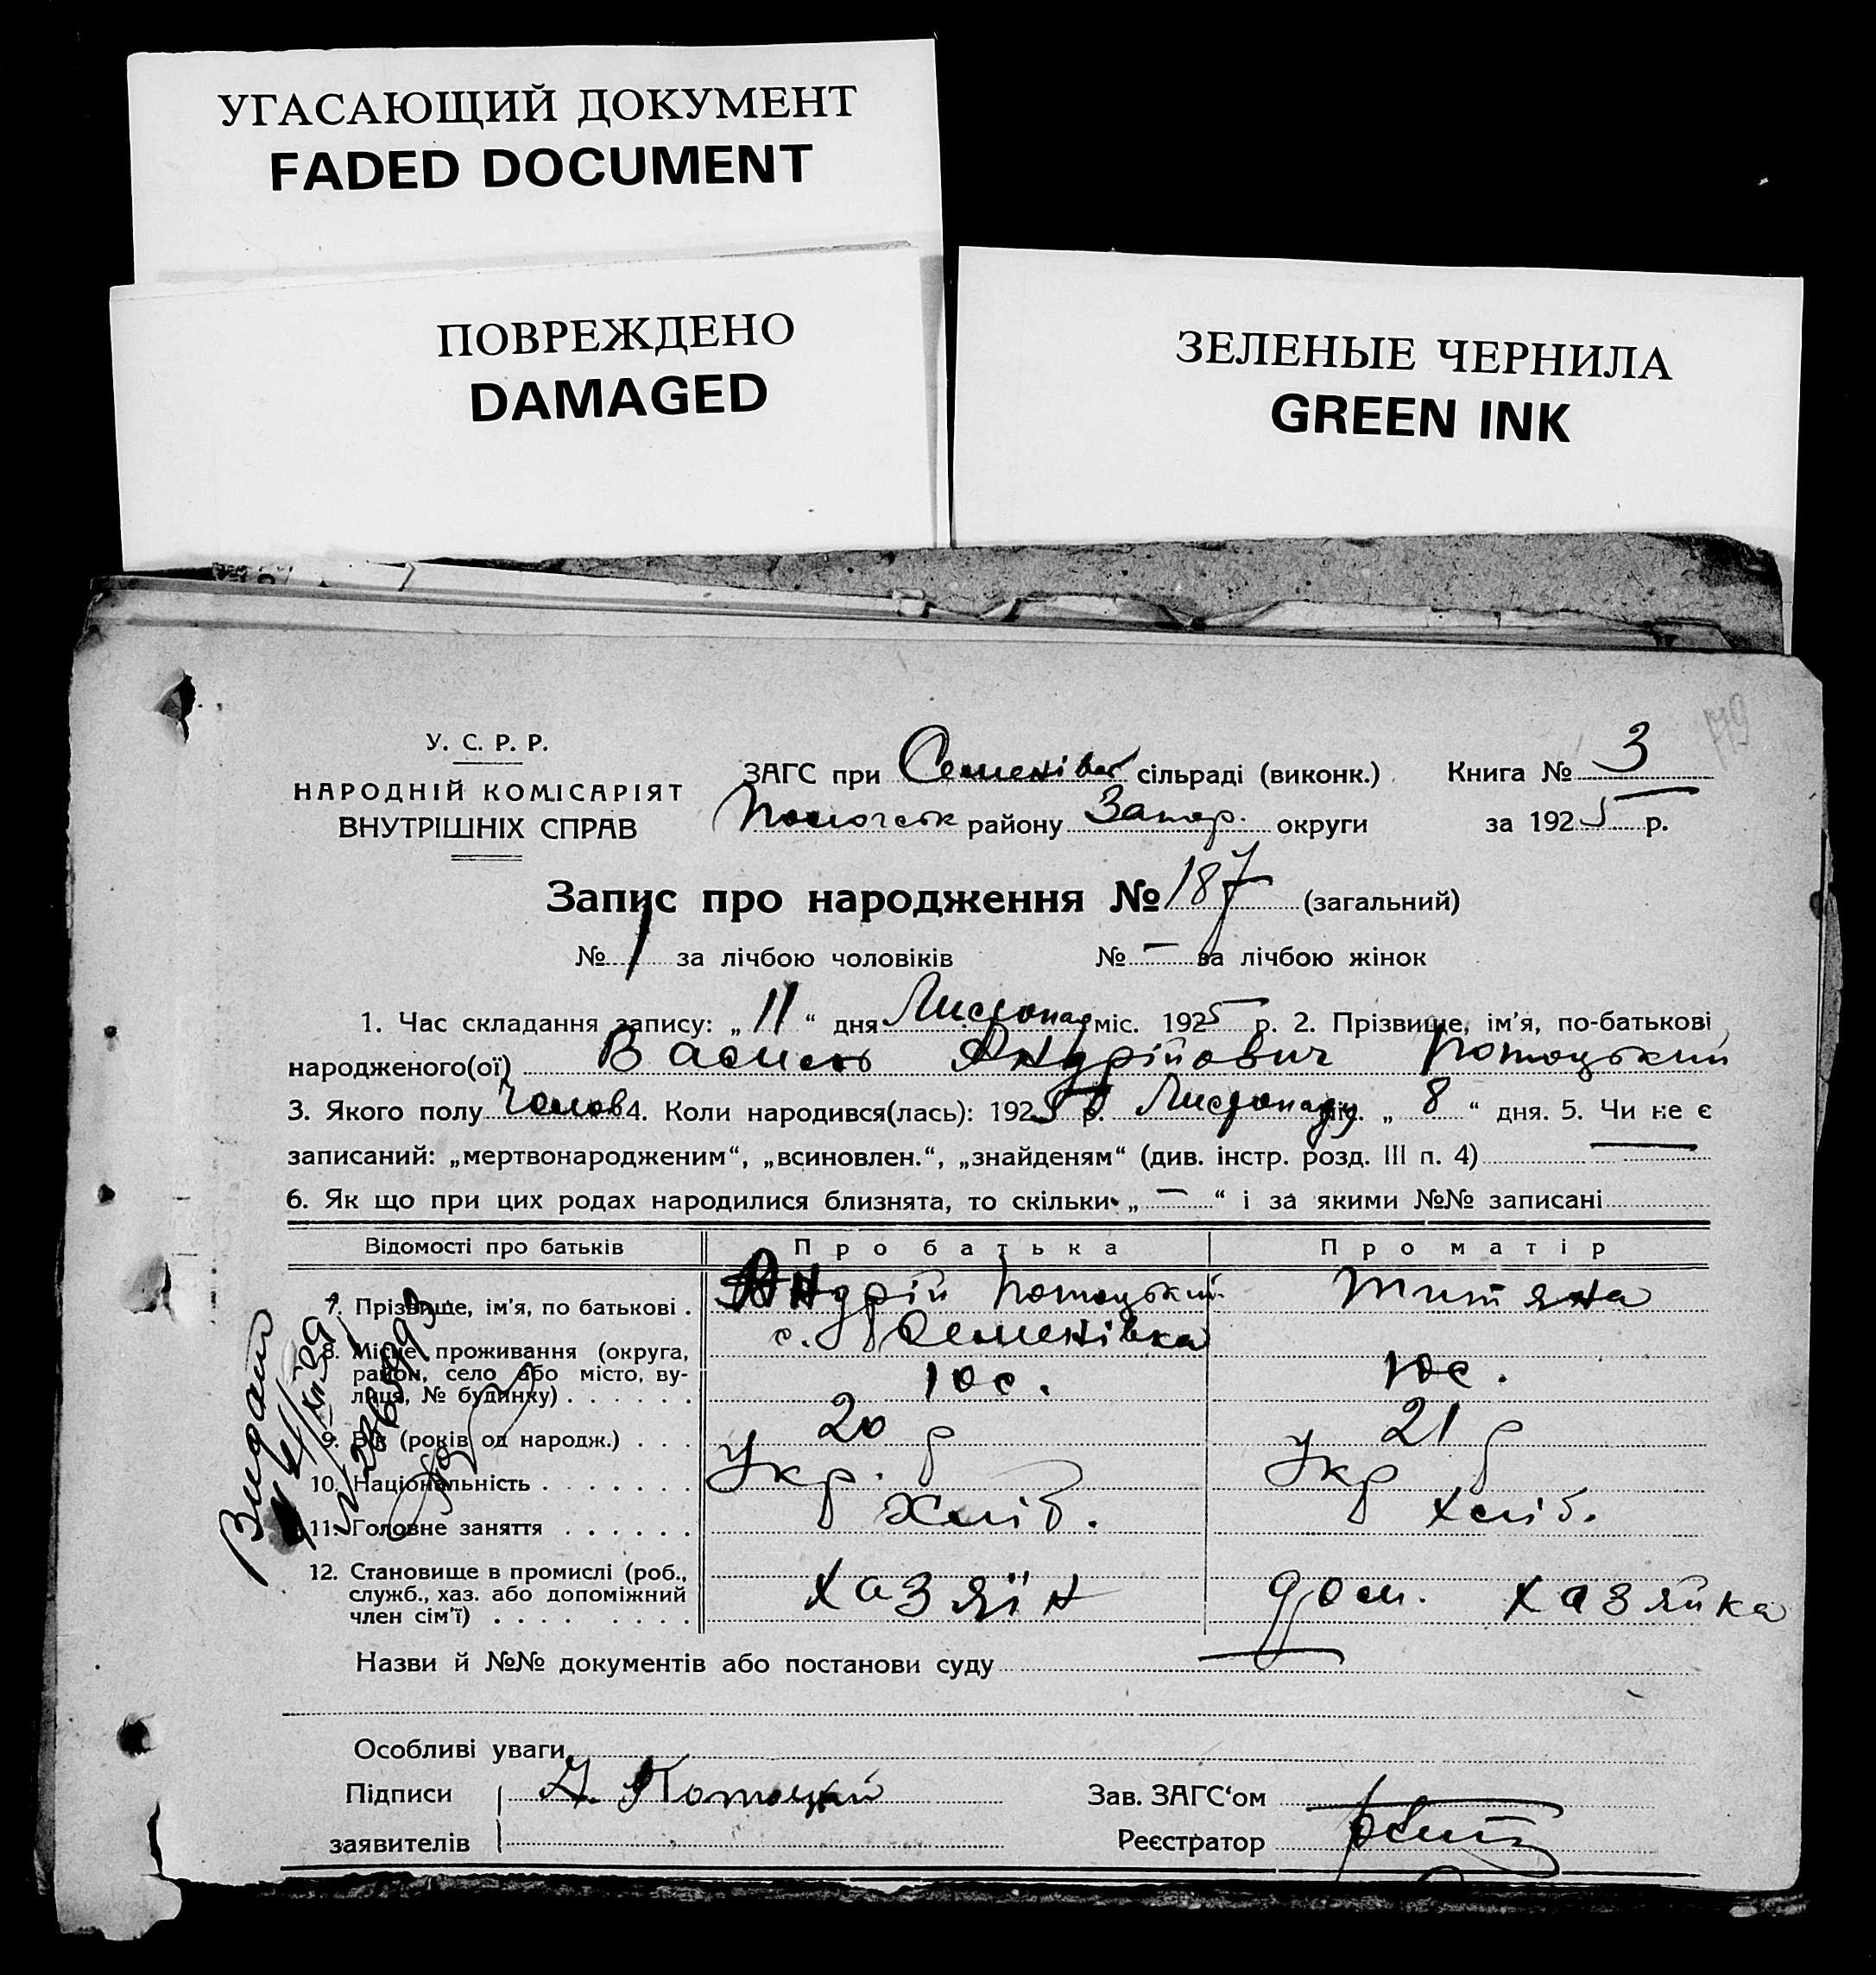 УГАСАЮЩИЙ ДОКУМЕНТ
FADED DOCUMENT
ПОВРЕЖДЕНО
DAMAGED
ЗЕЛЕНЫЕ ЧЕРНИЛА
GREEN INK
У. С. Р. Р.
НАРОДНІЙ КОМІСАРІЯТ
ВНУТРІШНІХ СПРАВ
ЗАГС при Семенівск сільраді (виконк.) Книга № 3
Пологськ району Запор. округи за 1925 р.
Запис про народження № 187 (загальний)
№ 1 за лічбою чоловіків № — за лічбою жінок
1. Час складання запису: „ 11 “ дня Листопад міс. 1925 р. 2. Прізвище, ім'я, по-батькові
народженого(ої) Василь Андрійович Потоцький
3. Якого полу Чолов 4. Коли народився(лась): 1925 р. Листопаду міс. „ 8 “ дня. 5. Чи не є
записаний: „мертвонародженим“, „всиновлен.“, „знайденям“ (див. інстр. розд. III п. 4) —
6. Як що при цих родах народилися близнята, то скільки „ — “ і за якими №№ записані
Відомості про батьків Про батька Про матір
7. Прізвище, ім'я, по батькові . Андрій Потоцький Титяна
8. Місце проживання (округа, район, село або місто, вулиця, № будинку) с. Семенівка
9. Вік (років од народж.) . . . 20 р 21 р
10. Національність . . . . . . . Укр. Укр
11. Головне заняття . . . . . . Хліб. Хліб.
12. Становище в промислі (роб., служб., хаз. або допоміжний член сім'ї) . . . . хазяїн дом. хазяйка
Назви й №№ документів або постанови суду —
Особливі уваги
Підписи А. Потоцкий Зав. ЗАГС'ом
заявителів Реєстратор
Видано